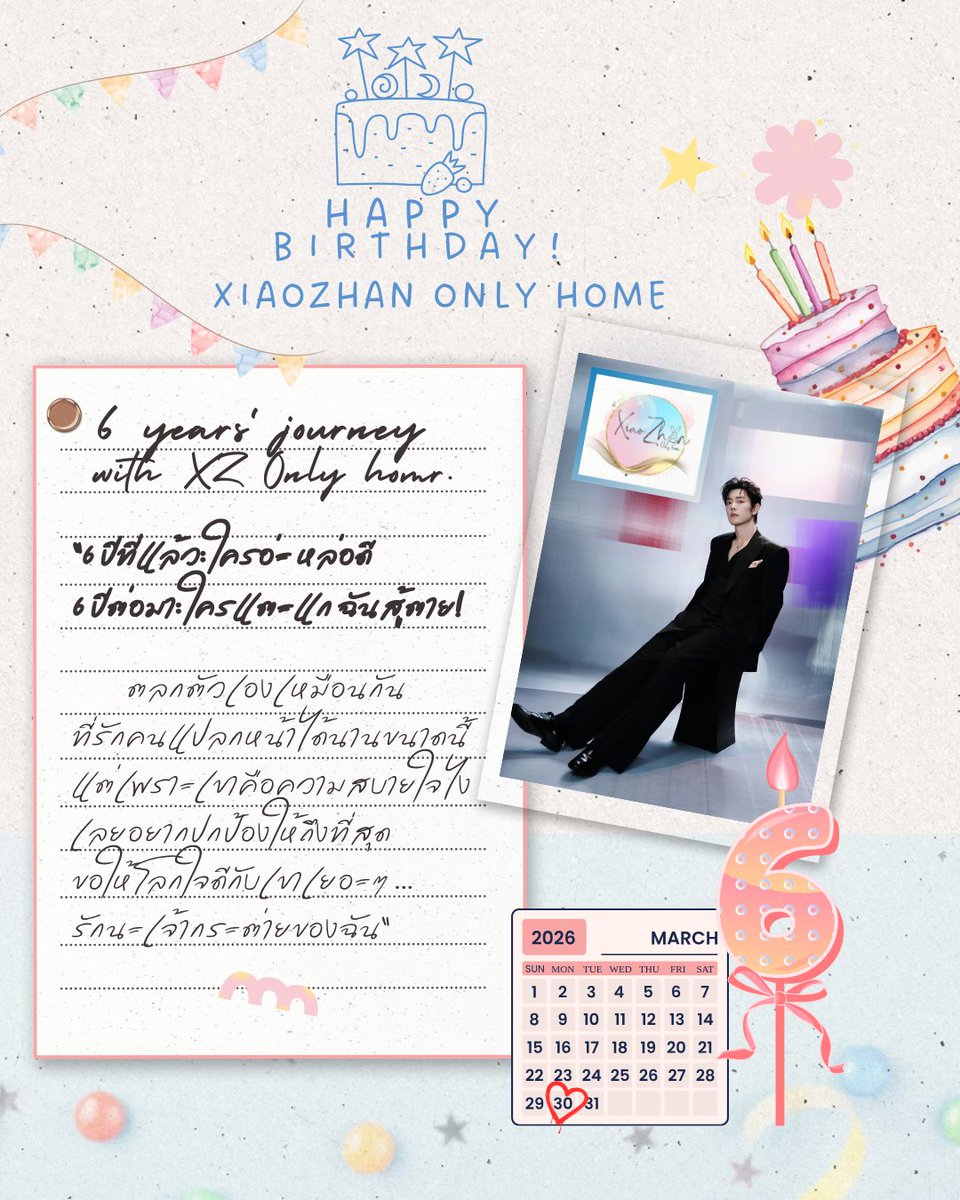 HAPPY
BIRTHDAY!
XIAOZHAN ONLY HOME
6 years' journey
with XZ Only homr.
"6 ปีที่แล้ว: ใครอ่ะ หล่อดี
6 ปีต่อมา: ใครแตะแก ฉันสู้ตาย!
ตลกตัวเองเหมือนกัน
ที่รักคนแปลกหน้าได้นานขนาดนี้
แต่เพราะเขาคือความสบายใจไง
เลยอยากปกป้องให้ถึงที่สุด
ขอให้โลกใจดีกับเขาเยอะๆ...
รักนะเจ้ากระต่ายของฉัน"
XiaoZhan
2026 MARCH
SUN MON TUE WED THU FRI SAT
1 2 3 4 5 6 7
8 9 10 11 12 13 14
15 16 17 18 19 20 21
22 23 24 25 26 27 28
29 30 31
6